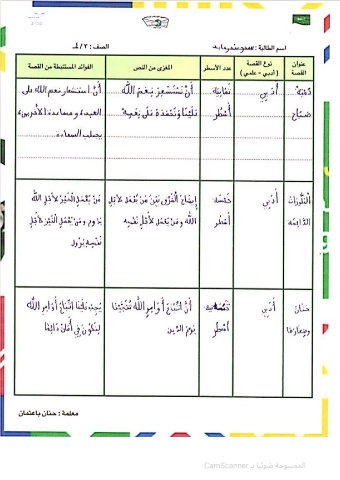 اسم الطالبة :
الصف : ٢/٣
عنوان القصة
نوع القصة (أدبي - علمي)
عدد الأسطر
المغزى من النص
الفوائد المستنبطة من القصة
صباح
أدبي
ثمانية أسطر
أن نستشعر نعم الله علينا ونحمده على نعمه
أن استشعار نعم الله على العبد ومساعدة الآخرين يجلب السعادة
الدائمة
أدبي
خمسة أسطر
إيضاح الفرق بين من يفعل لأجل الله ومن يفعل لأجل نفسه
من يفعل الخير لأجل الله يدوم ومن يفعل الخير لأجل نفسه يزول
حنان
أدبي
خمسة أسطر
أن اتباع أوامر الله تنجينا يوم الدين
يجب علينا اتباع أوامر الله لنكون في أمان دائما
معلمة : حنان باعثمان
الممسوحة ضوئيا بـ CamScanner